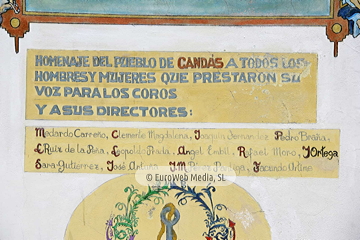 HOMENAJE DEL PUEBLO DE CANDÁS A TODOS LOS
HOMBRES Y MUJERES QUE PRESTARON SU
VOZ PARA LOS COROS
Y A SUS DIRECTORES:
Medardo Carreño, Clemente Magdalena, Joaquín Fernández Pedro Braña,
E. Ruiz de la Peña, Leopoldo Prada, Angel Embil, Rafael Moro, J Ortega
Sara Gutierrez, José Antonio J.M. Pérez Pedraja, Facundo
© EuroWeb Media, SL